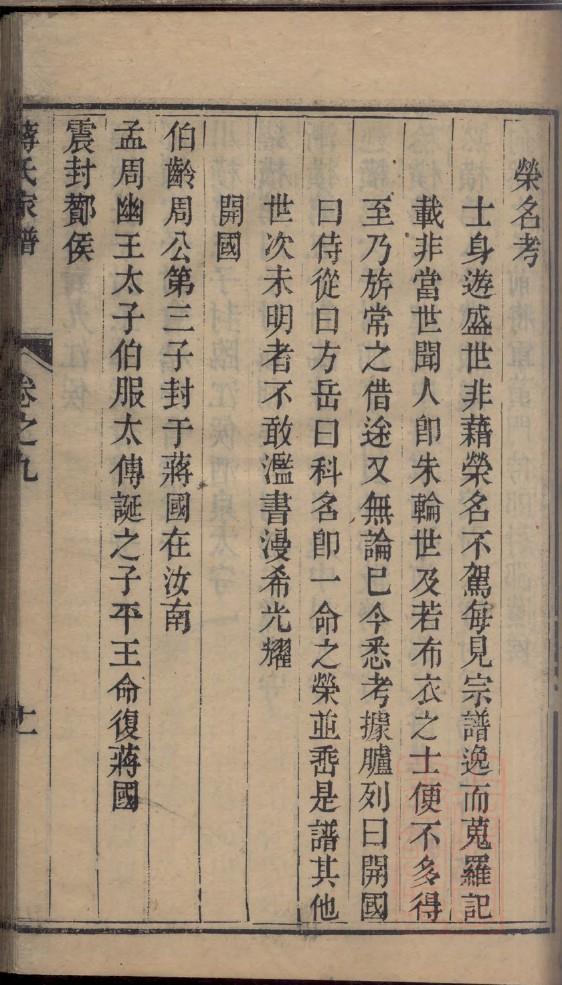 榮名考
士身遊盛世非藉榮名不駕每見宗譜逸而蒐羅記
載非當世聞人卽朱輪世及若布衣之士便不多得
至乃旂常之借途又無論已今悉考據臚列曰開國
曰侍從曰方岳曰科名卽一命之榮並垂是譜其他
世次未明者不敢濫書漫希光耀
開國
伯齡周公第三子封于蔣國在汝南
孟周幽王太子伯服太傳誕之子平王命復蔣國
震封酇侯
蔣氏家譜 卷之九 十一